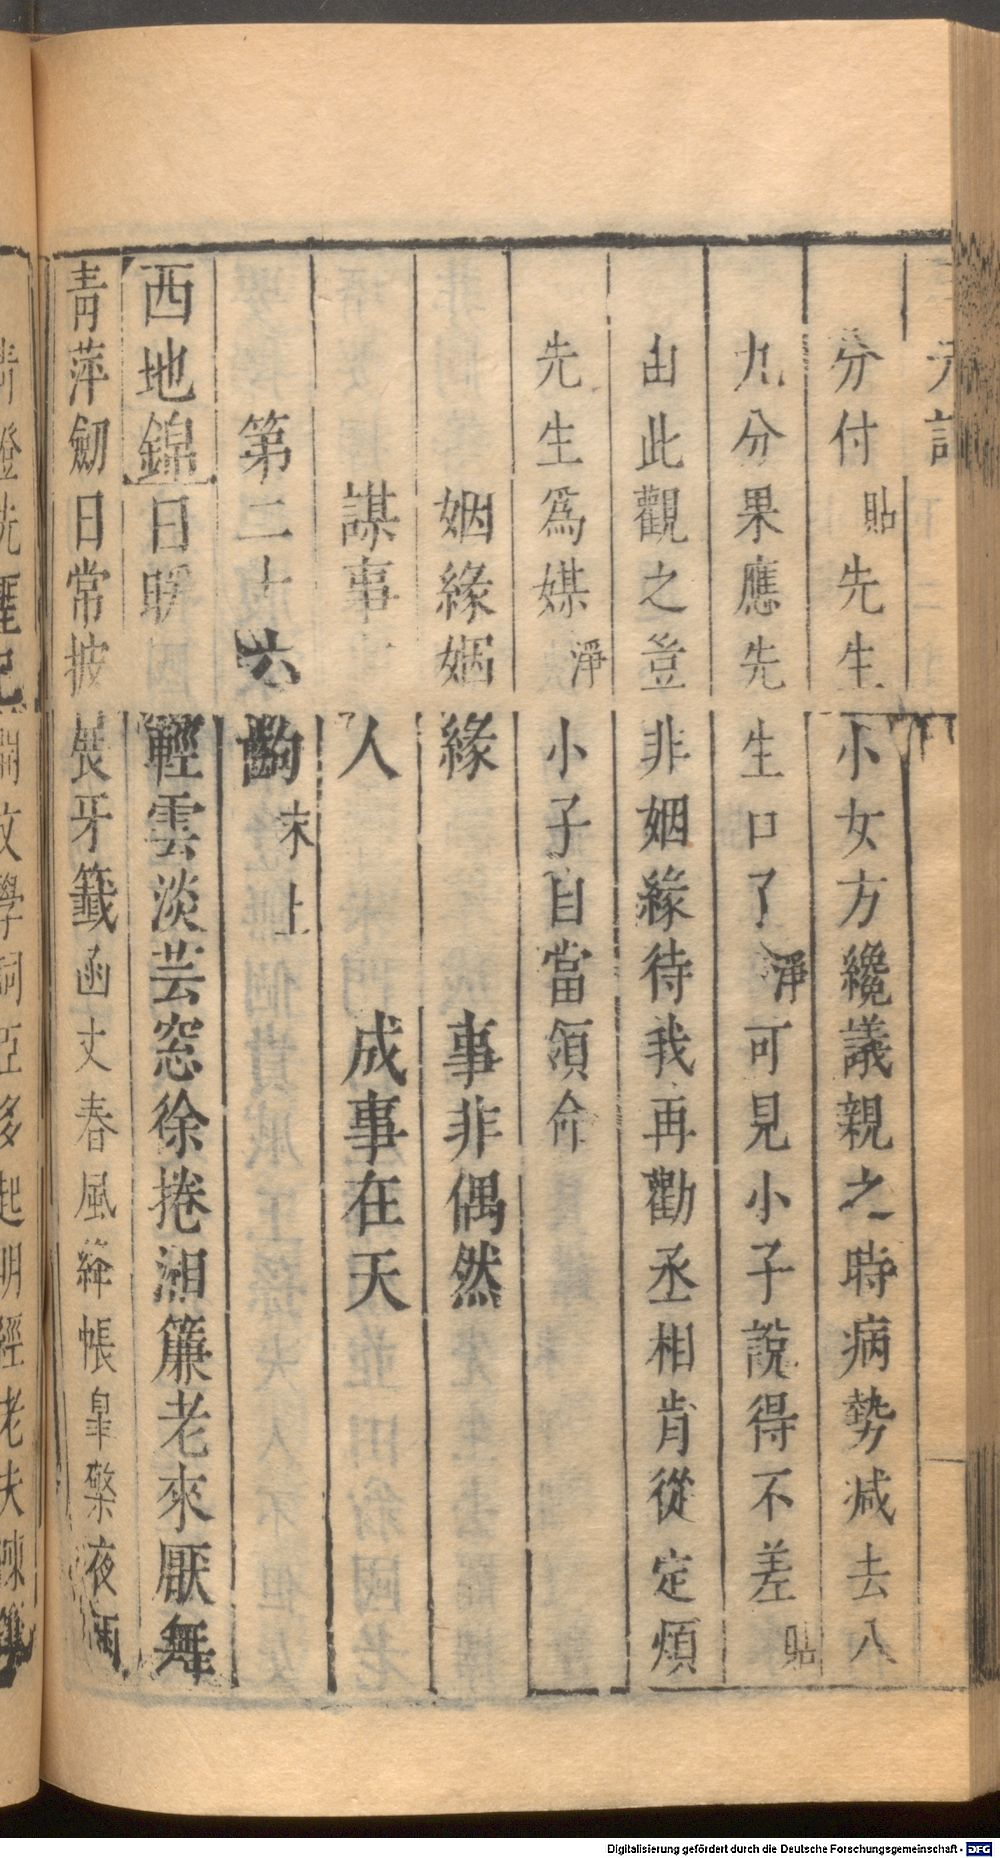 分付貼先生小女方纔議親之時病勢減去八
九分果應先生口了淨可見小子說得不差貼
由此觀之豈非姻緣待我再勸丞相肯從定煩
先生爲媒淨小子自當領命
姻緣姻緣 事非偶然
謀事 人 成事在天
第二十六齣末上
西地錦日暖輕雲淡芸窓徐捲湘簾老來厭舞
青萍劒日常披展牙籤函丈春風絳帳皐檠夜雨
Digitalisierung gefördert durch die Deutsche Forschungsgemeinschaft - DFG